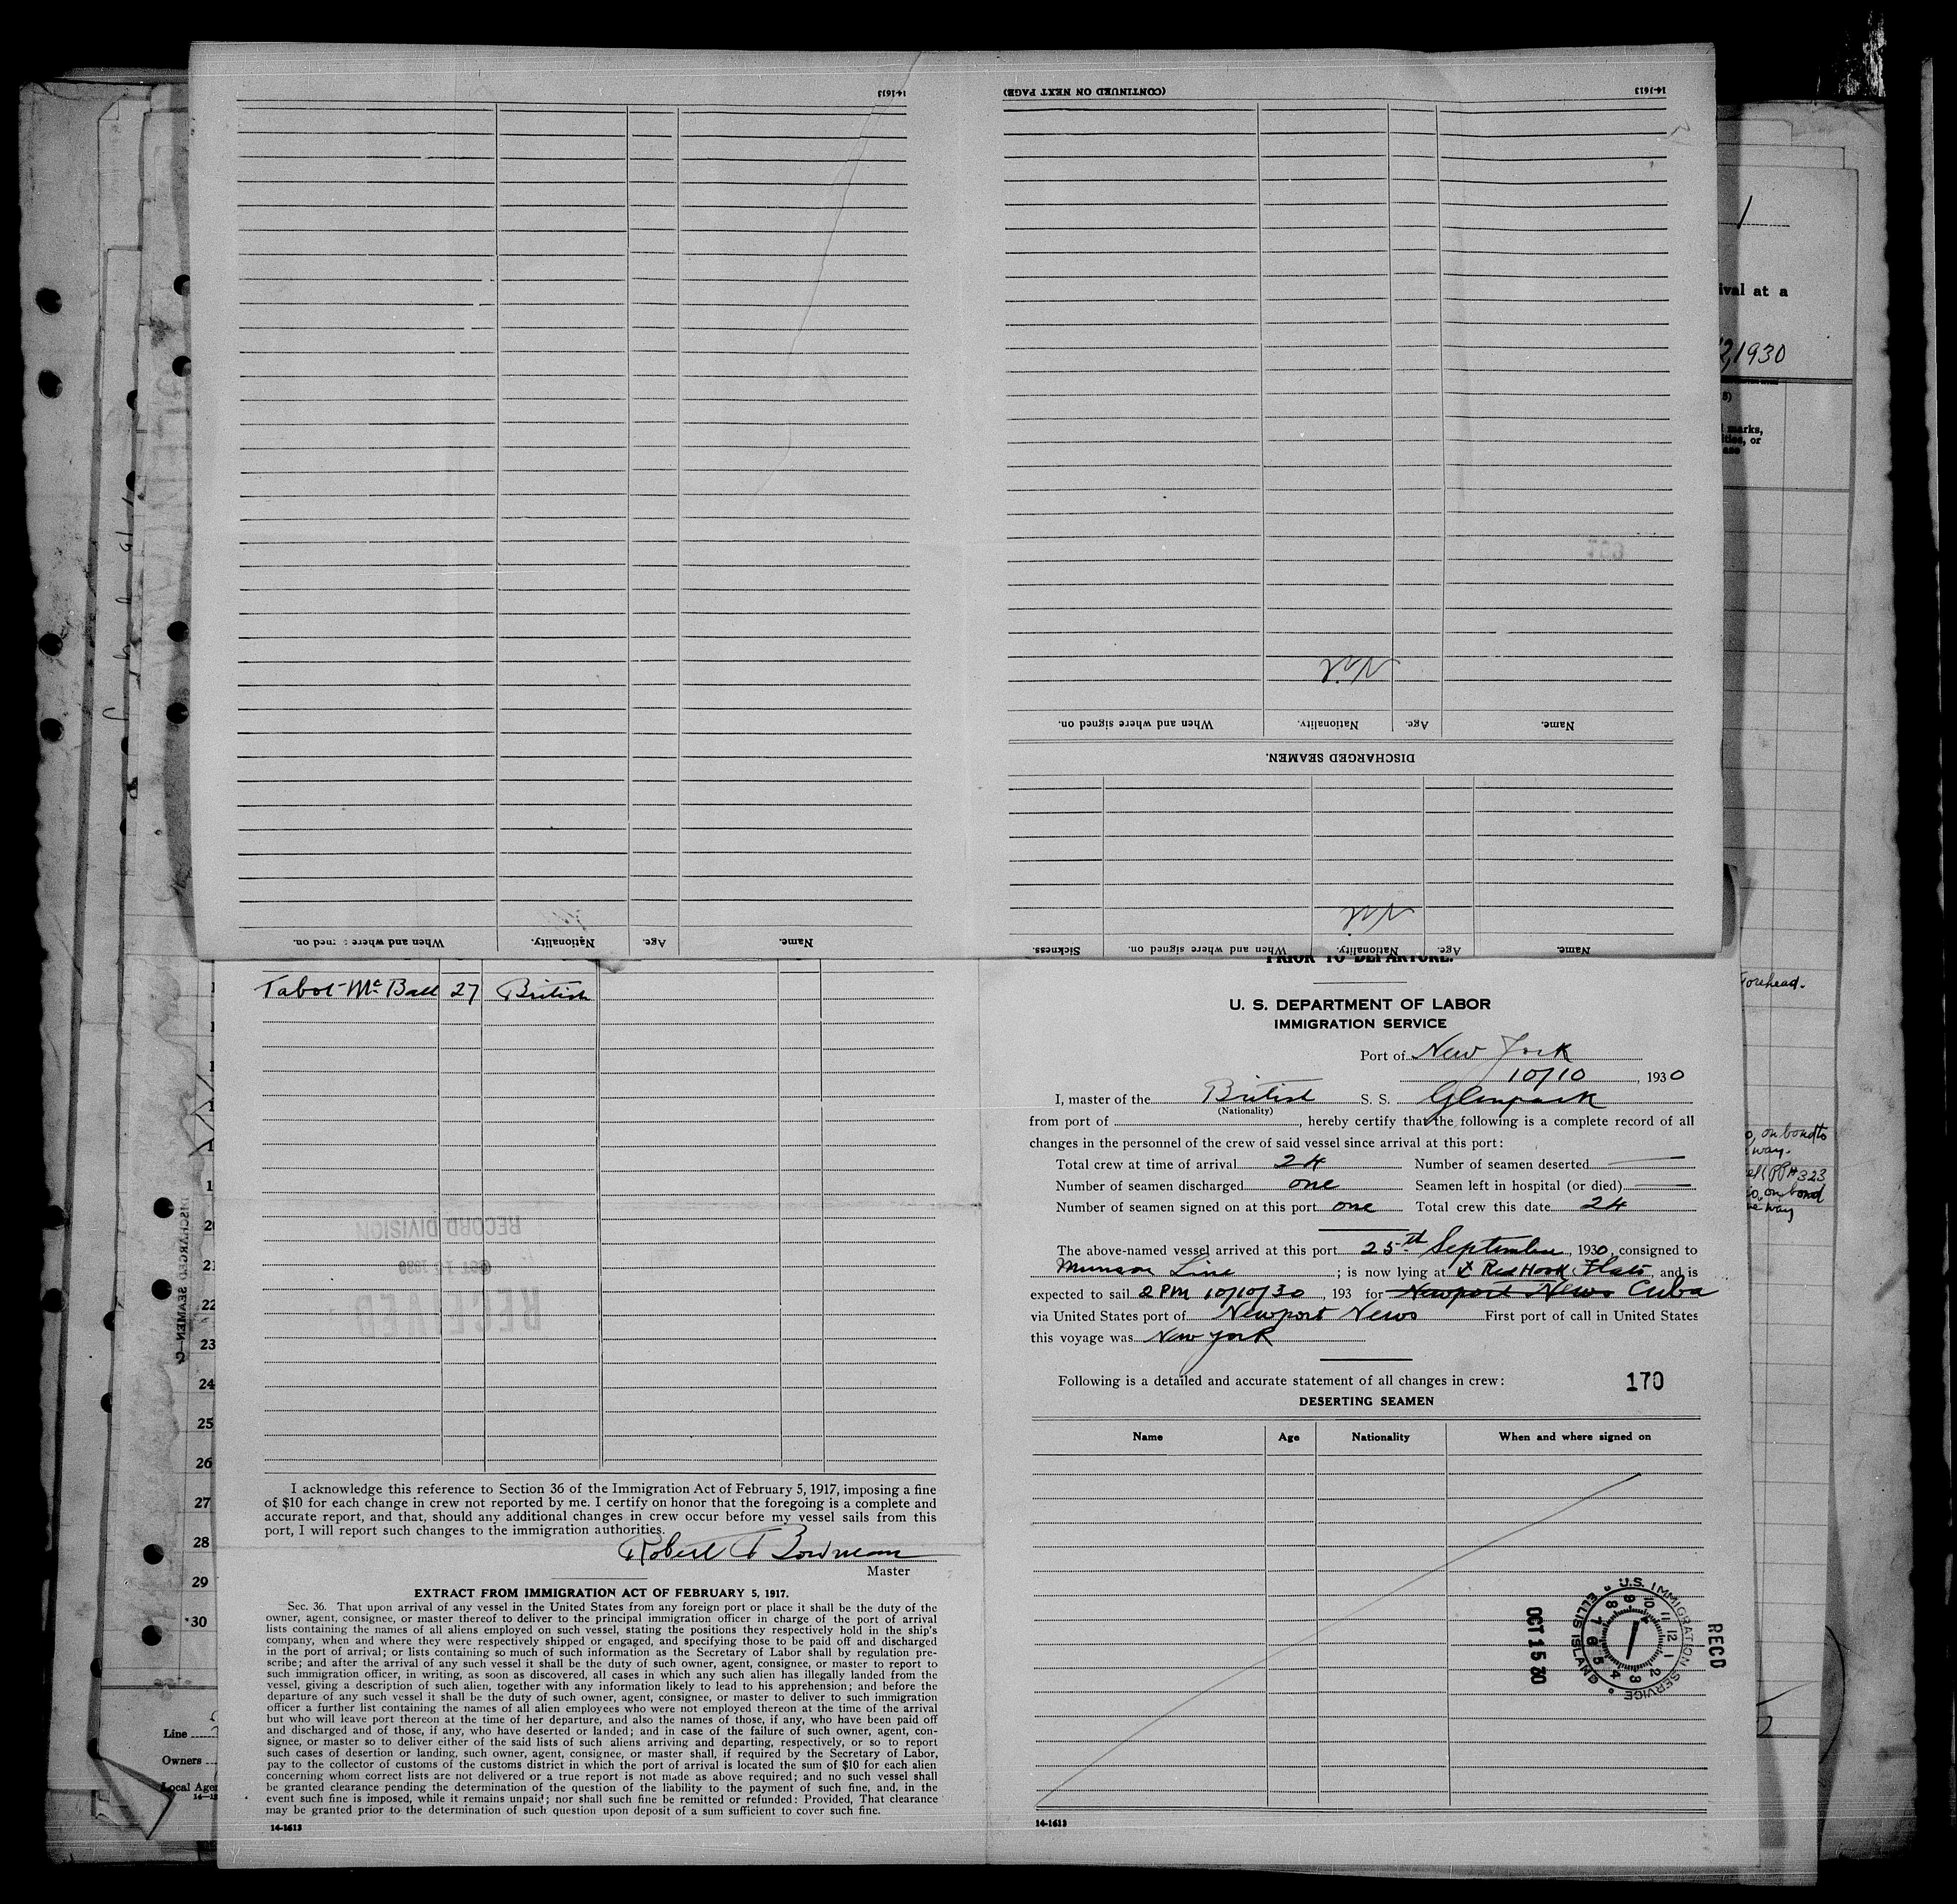 14-1613
(CONTINUED ON NEXT PAGE)
14-1613
Nil
When and where signed on.
Nationality.
Age.
Name.
DISCHARGED SEAMEN.
Nil
When and where signed on.
Nationality.
Age.
Name.
Sickness.
When and where signed on.
Nationality.
Age.
Name.
Talbot McBall 27 British
I acknowledge this reference to Section 36 of the Immigration Act of February 5, 1917, imposing a fine
of $10 for each change in crew not reported by me. I certify on honor that the foregoing is a complete and
accurate report, and that, should any additional changes in crew occur before my vessel sails from this
port, I will report such changes to the immigration authorities.
Robert T Bowman
Master
EXTRACT FROM IMMIGRATION ACT OF FEBRUARY 5, 1917.
Sec. 36. That upon arrival of any vessel in the United States from any foreign port or place it shall be the duty of the
owner, agent, consignee, or master thereof to deliver to the principal immigration officer in charge of the port of arrival
lists containing the names of all aliens employed on such vessel, stating the positions they respectively hold in the ship's
company, when and where they were respectively shipped or engaged, and specifying those to be paid off and discharged
in the port of arrival; or lists containing so much of such information as the Secretary of Labor shall by regulation pre-
scribe; and after the arrival of any such vessel it shall be the duty of such owner, agent, consignee, or master to report to
such immigration officer, in writing, as soon as discovered, all cases in which any such alien has illegally landed from the
vessel, giving a description of such alien, together with any information likely to lead to his apprehension; and before the
departure of any such vessel it shall be the duty of such owner, agent, consignee, or master to deliver to such immigration
officer a further list containing the names of all alien employees who were not employed thereon at the time of the arrival
but who will leave port thereon at the time of her departure, and also the names of those, if any, who have been paid off
and discharged and of those, if any, who have deserted or landed; and in case of the failure of such owner, agent, con-
signee, or master so to deliver either of the said lists of such aliens arriving and departing, respectively, or so to report
such cases of desertion or landing, such owner, agent, consignee, or master shall, if required by the Secretary of Labor,
pay to the collector of customs of the customs district in which the port of arrival is located the sum of $10 for each alien
concerning whom correct lists are not delivered or a true report is not made as above required; and no such vessel shall
be granted clearance pending the determination of the question of the liability to the payment of such fine, and, in the
event such fine is imposed, while it remains unpaid; nor shall such fine be remitted or refunded: Provided, That clearance
may be granted prior to the determination of such question upon deposit of a sum sufficient to cover such fine.
14-1613
RECORD DIVISION
RECEIVED
PRIOR TO DEPARTURE.
U. S. DEPARTMENT OF LABOR
IMMIGRATION SERVICE
Port of New York
10/10, 1930
I, master of the British S. S. Glenpark
(Nationality)
from port of , hereby certify that the following is a complete record of all
changes in the personnel of the crew of said vessel since arrival at this port:
Total crew at time of arrival 24 Number of seamen deserted —
Number of seamen discharged one Seamen left in hospital (or died) —
Number of seamen signed on at this port one Total crew this date 24
The above-named vessel arrived at this port 25th September, 1930, consigned to
Munson Line ; is now lying at Red Hook Flats, and is
expected to sail 2 PM 10/10/30, 193 for Newport News Cuba
via United States port of Newport News First port of call in United States
this voyage was New York
Following is a detailed and accurate statement of all changes in crew:
170
DESERTING SEAMEN
Name Age Nationality When and where signed on
RECD
U.S. IMMIGRATION SERVICE
ELLIS ISLAND
OCT 15 30
14-1613
ival at a
2, 1930
marks,
or
Forehead.
o, on bond to
way.
323
on bond
way
20
21
22
23
24
25
26
27
28
29
30
Line
Owners
Local Agen